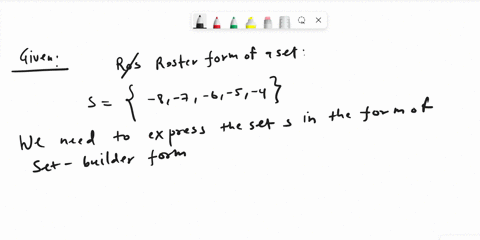 Given: Roster form of a set:
S = { -8, -7, -6, -5, -4 }
We need to express the set s in the form of
Set-builder form